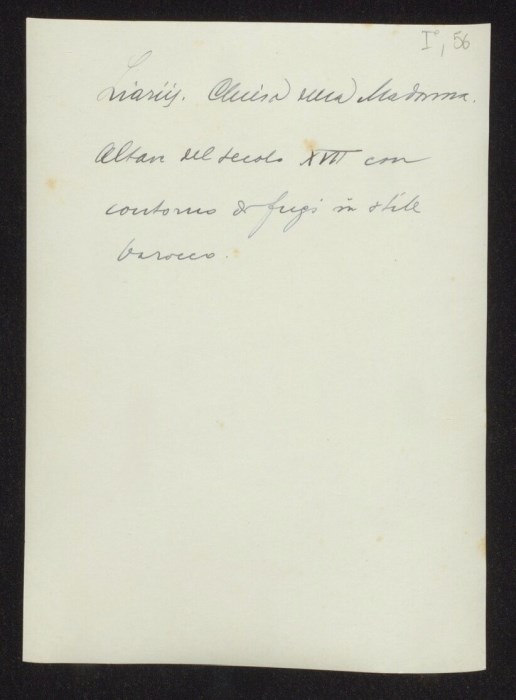 I, 56
Liariis. Chiesa della Madonna.
Altare del secolo XVII con
contorno di fregi in stile
barocco.